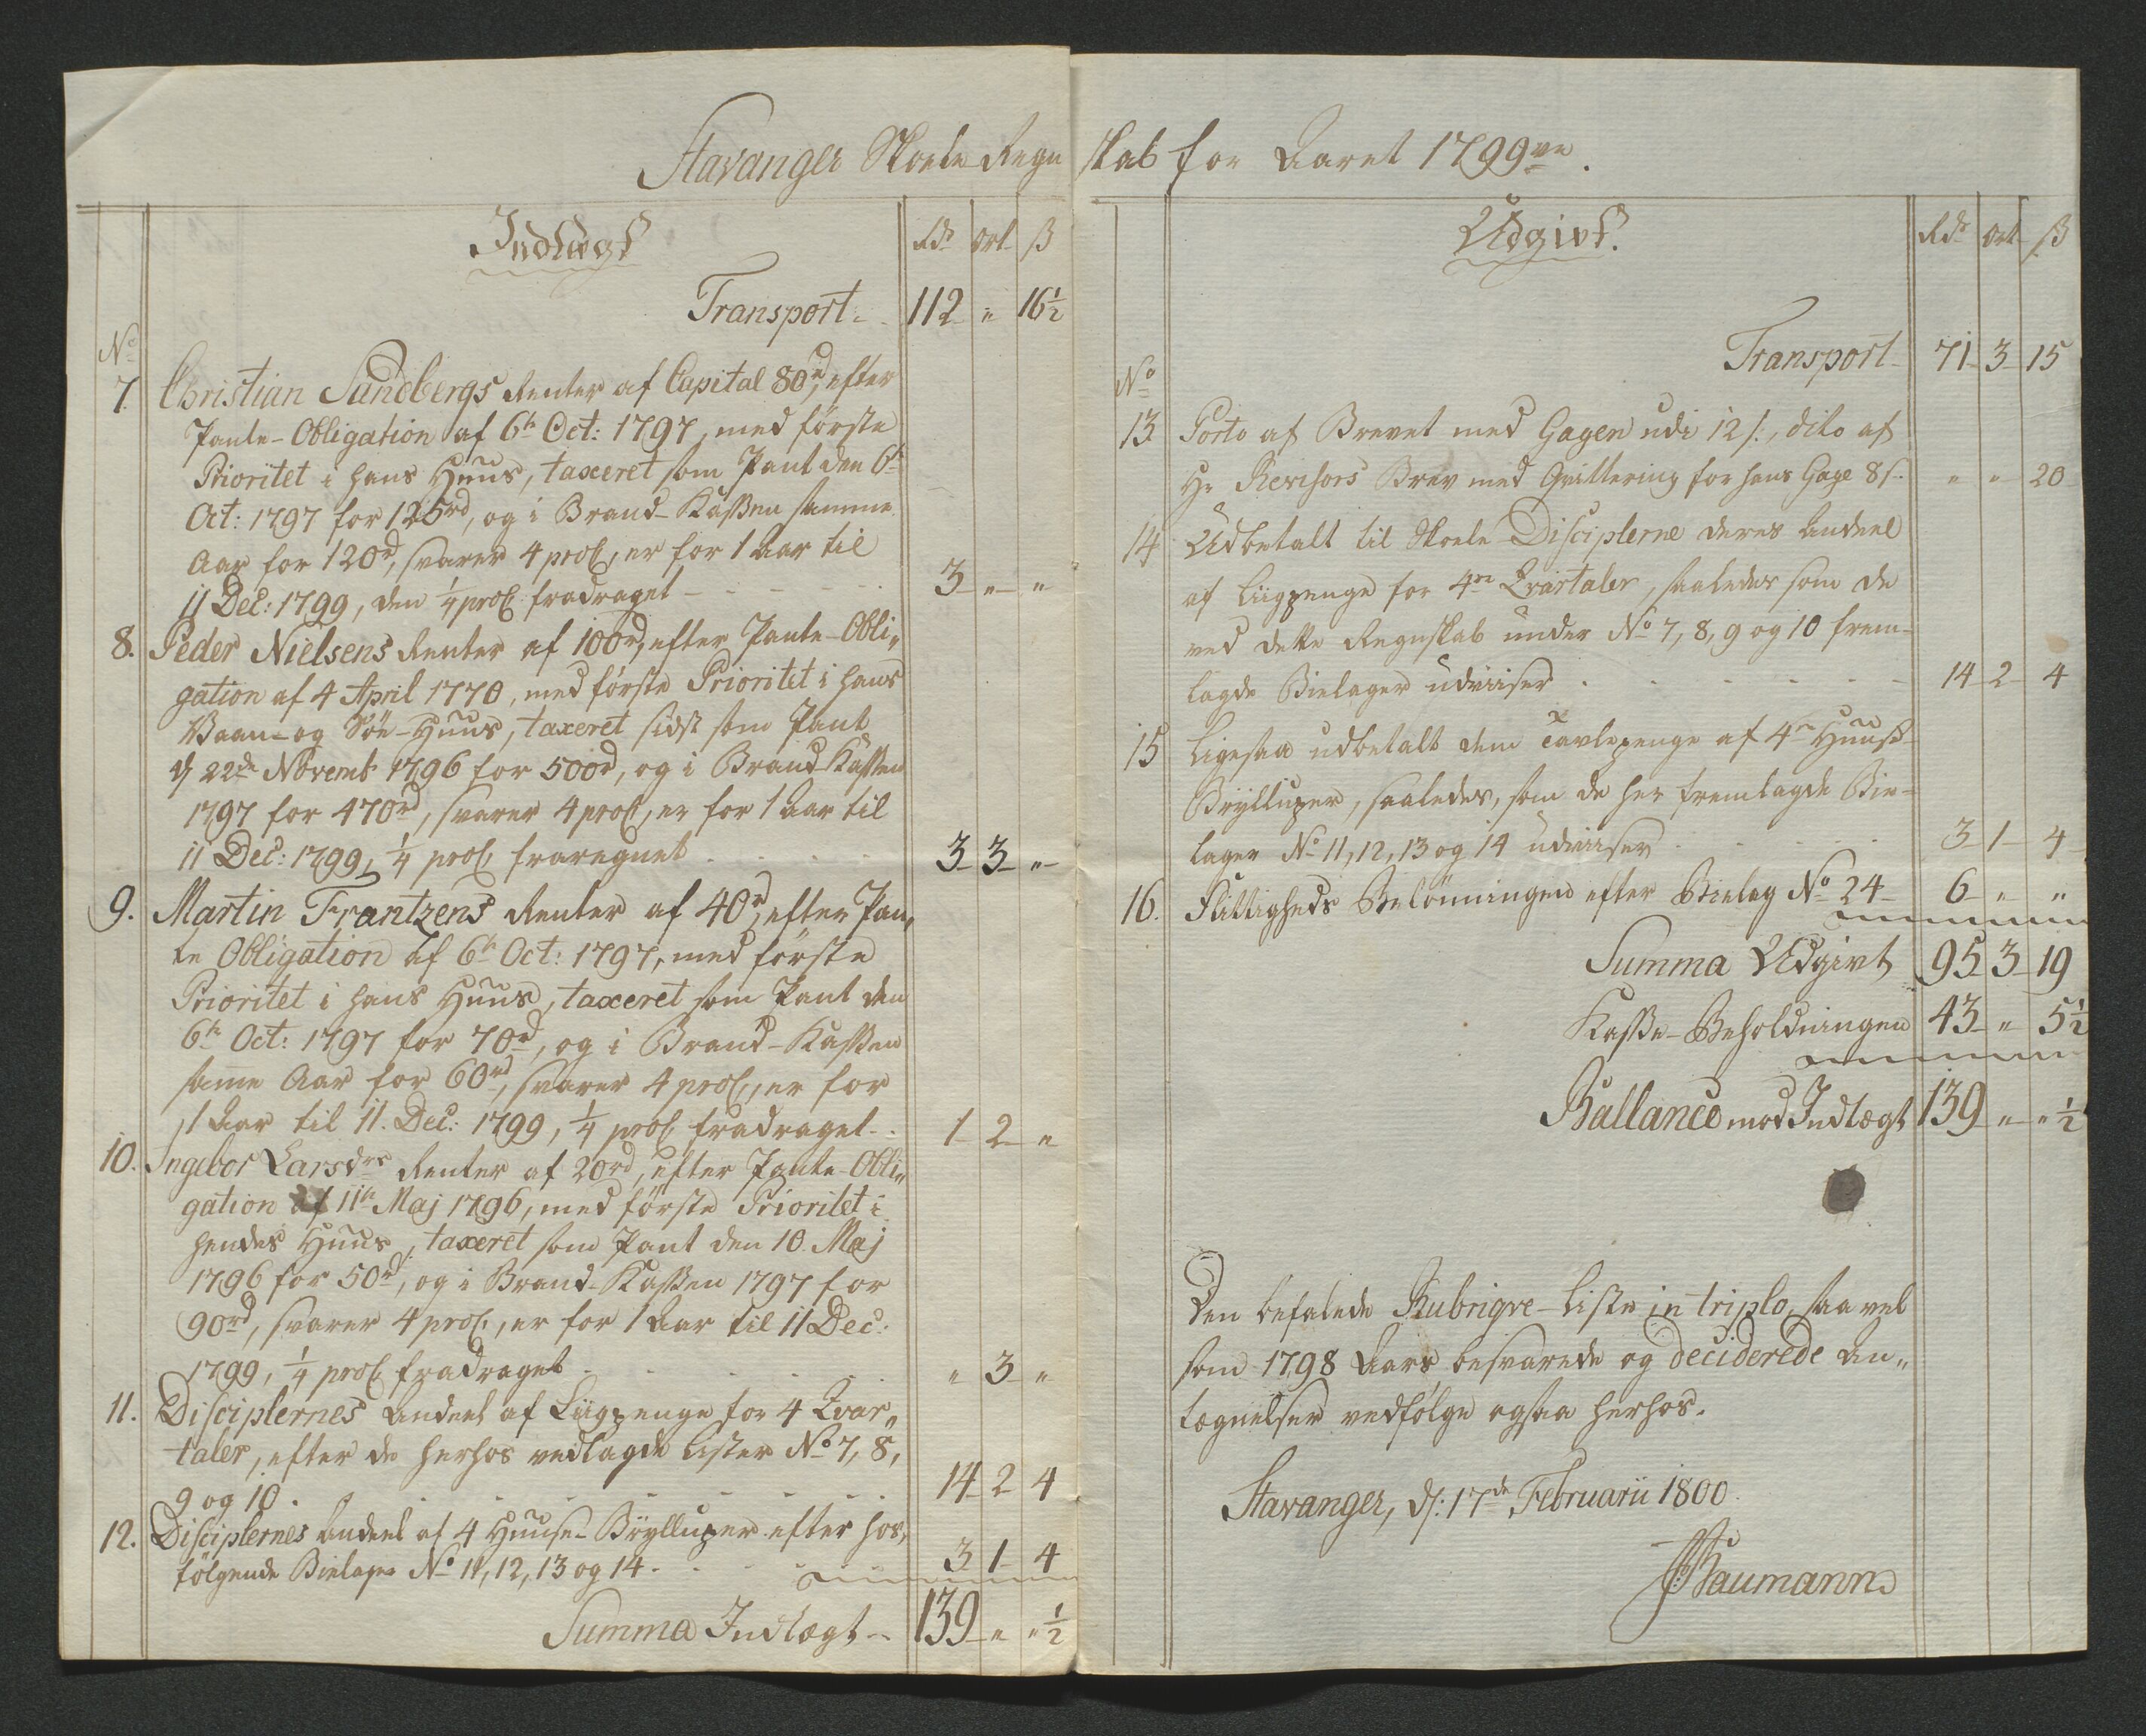 Stavanger Skoele-Regnskab for Aaret 1799ve.
Indtægt
Rdr Ort ß
Transport. 112 " 16½
No
7. Christian Sundbergs Renter af Capital 80rd, efter
Pante-Obligation af 6te Oct: 1797, med förste
Prioritet i hans Huus, taxeret som Pant den 6te
Oct: 1797 for 125rd, og i Brand-Kassen samme
Aar for 120rd, svarer 4 proC, er for 1 Aar til
11 Dec: 1799, den ¼ proC fradraget - - - 3 " "
8. Peder Nielsens Renter af 100rd, efter Pante-Obli„
gation af 4 April 1770, med förste Prioritet i hans
Vaan- og Söe-Huus, taxeret sidst som Pant
d 22de Novemb 1796 for 500rd, og i Brand-Kassen
1797 for 470rd, svarer 4 proC, er for 1 Aar til
11 Dec: 1799, ¼ proC fraregnet . . . 3 3 "
9. Martin Frantzens Renter af 40rd, efter Pan„
te Obligation af 6te Oct: 1797, med förste
Prioritet i hans Huus, taxeret som Pant den
6te Oct: 1797 for 70rd, og i Brand-Kassen
samme Aar for 60rd, svarer 4 proC, er for
1 Aar til 11. Dec: 1799, ¼ proC fradraget . . 1 2 "
10. Ingebor Larsdrs Renter af 20rd, efter Pante-Obli„
gation af 11te Maj 1796, med förste Prioritet i
hendes Huus, taxeret som Pant den 10. Maj
1796 for 50rd, og i Brand-Kassen 1797 for
90rd, svarer 4 proC, er for 1 Aar til 11 Dec:
1799, ¼ proC fradraget . . . " 3 "
11. Disciplernes Andeel af Liigpenge for 4 Qvar„
taler, efter de herhos vedlagde Lister No 7, 8,
9 og 10. . . . 14 2 4
12. Disciplernes Andeel af 4 Huuse-Bryllupper efter hos„
fölgende Bielager No 11, 12, 13 og 14. . . 3 1 4
Summa Indtægt . . 139 " " ½
Udgivt.
Rdr Ort ß
Transport 71 3 15
No
13. Porto af Brevet med Gagen udi 12 ß., dito af
Hr Revisors Brev med Qvittering for hans Gage 8 ß. " " 20
14. Udbetalt til Skoele Disciplerne deres Andeel
af Liigpenge for 4re Qvartaler, saaledes som de
ved dette Regnskab under No 7, 8, 9 og 10 frem-
lagde Bielager udviiser . . . 14 2 4
15. Ligesaa udbetalt dem Tavlepenge af 4re Huus-
Bryllupper, saaledes, som de her fremlagde Bie-
lager No 11, 12, 13 og 14 udviiser . . . 3 1 4
16. Flittigheds Belönningen efter Bielag No 24 6 " "
Summa Udgivt 95 3 19
Kasse-Beholdningen 43 " 5½
Ballance mod Indtægt 139 " " ½
Den befalede Rubriqve-Liste in triplo, saavel
som 1798 Aars besvarede og deciderede An„
tegnelser vedfölge ogsaa herhos.
Stavanger, d: 17de Februarii 1800.
Baumann